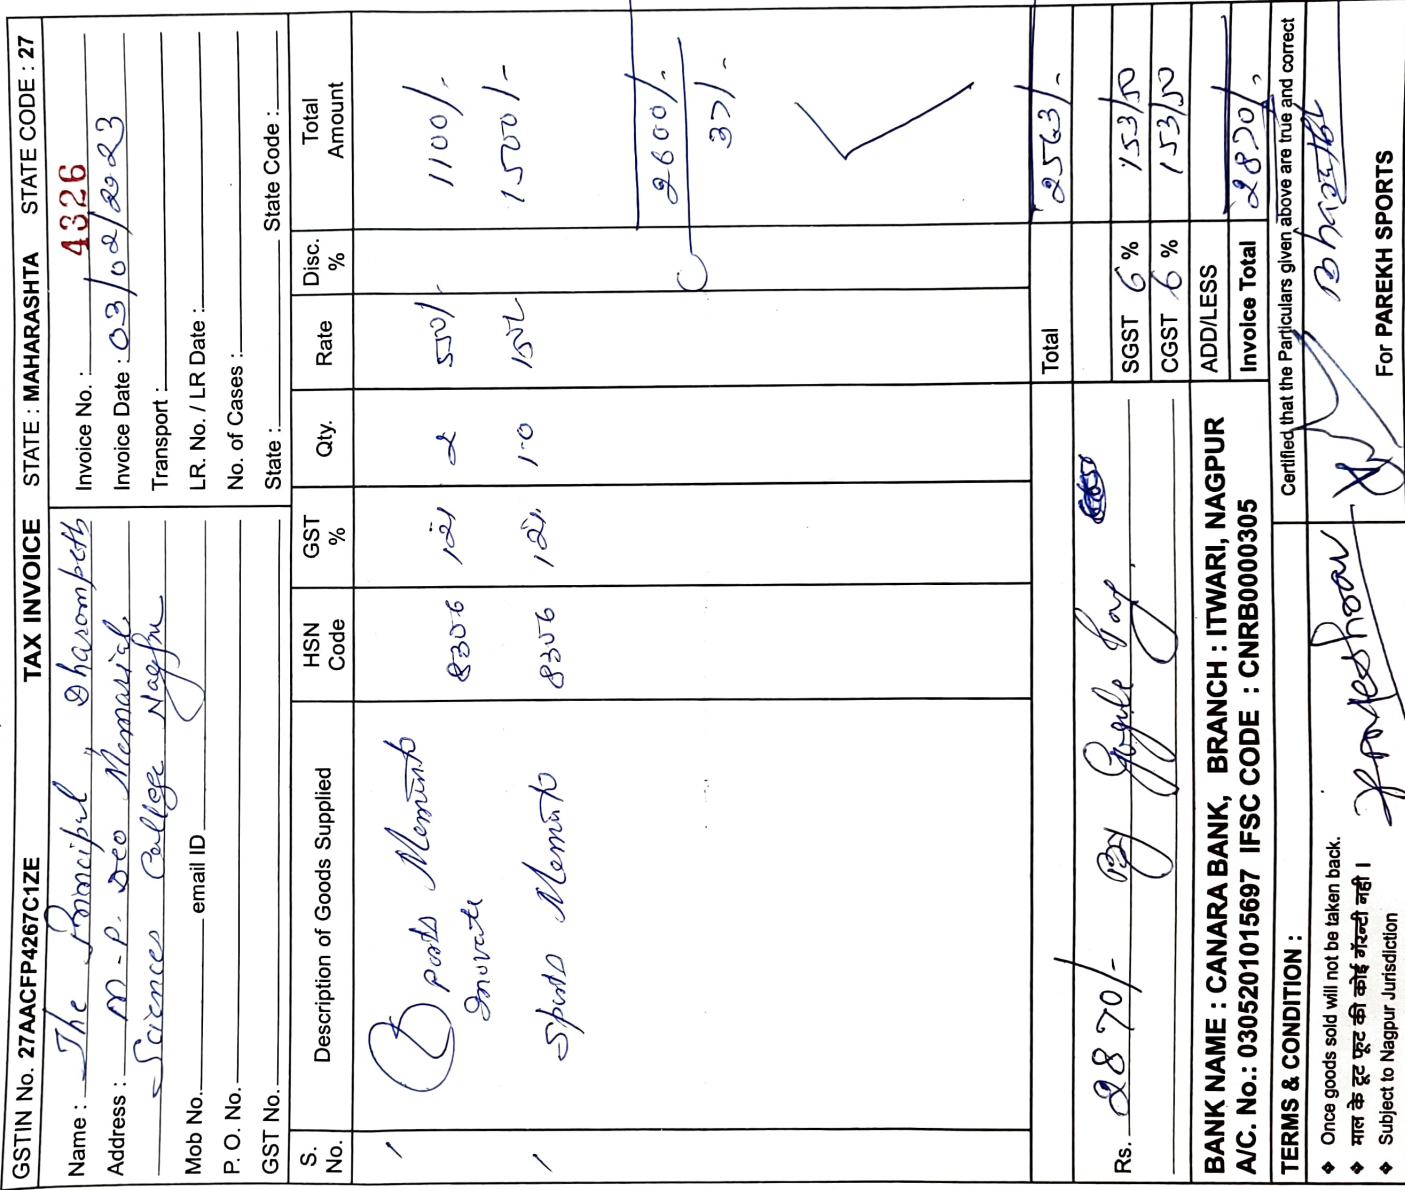 GSTIN No. 27AACFP4267C1ZE TAX INVOICE STATE : MAHARASHTA STATE CODE : 27
Name : The Principal, Dharampeth
Address : M-P. Deo Memorial
Sciences College Nagpur
Mob No. email ID
P. O. No.
GST No.
Invoice No. : 4326
Invoice Date : 03/02/2023
Transport :
LR. No. / LR Date :
No. of Cases :
State : State Code :
S. No. Description of Goods Supplied HSN Code GST % Qty. Rate Disc. % Total Amount
Sports Memento 8306 12% 2 550/- 1100/-
Sports Memento 8306 12% 10 150/- 1500/-
2600/-
37/-
Total 2563/-
Rs. 2870/- By Google Pay
SGST 6 % 153/50
CGST 6 % 153/50
ADD/LESS
Invoice Total 2870/-
BANK NAME : CANARA BANK, BRANCH : ITWARI, NAGPUR
A/C. No.: 0305201015697 IFSC CODE : CNRB0000305
TERMS & CONDITION :
❖ Once goods sold will not be taken back.
❖ माल के टूट फूट की कोई गॅरन्टी नही ।
❖ Subject to Nagpur Jurisdiction
Certified that the Particulars given above are true and correct
For PAREKH SPORTS